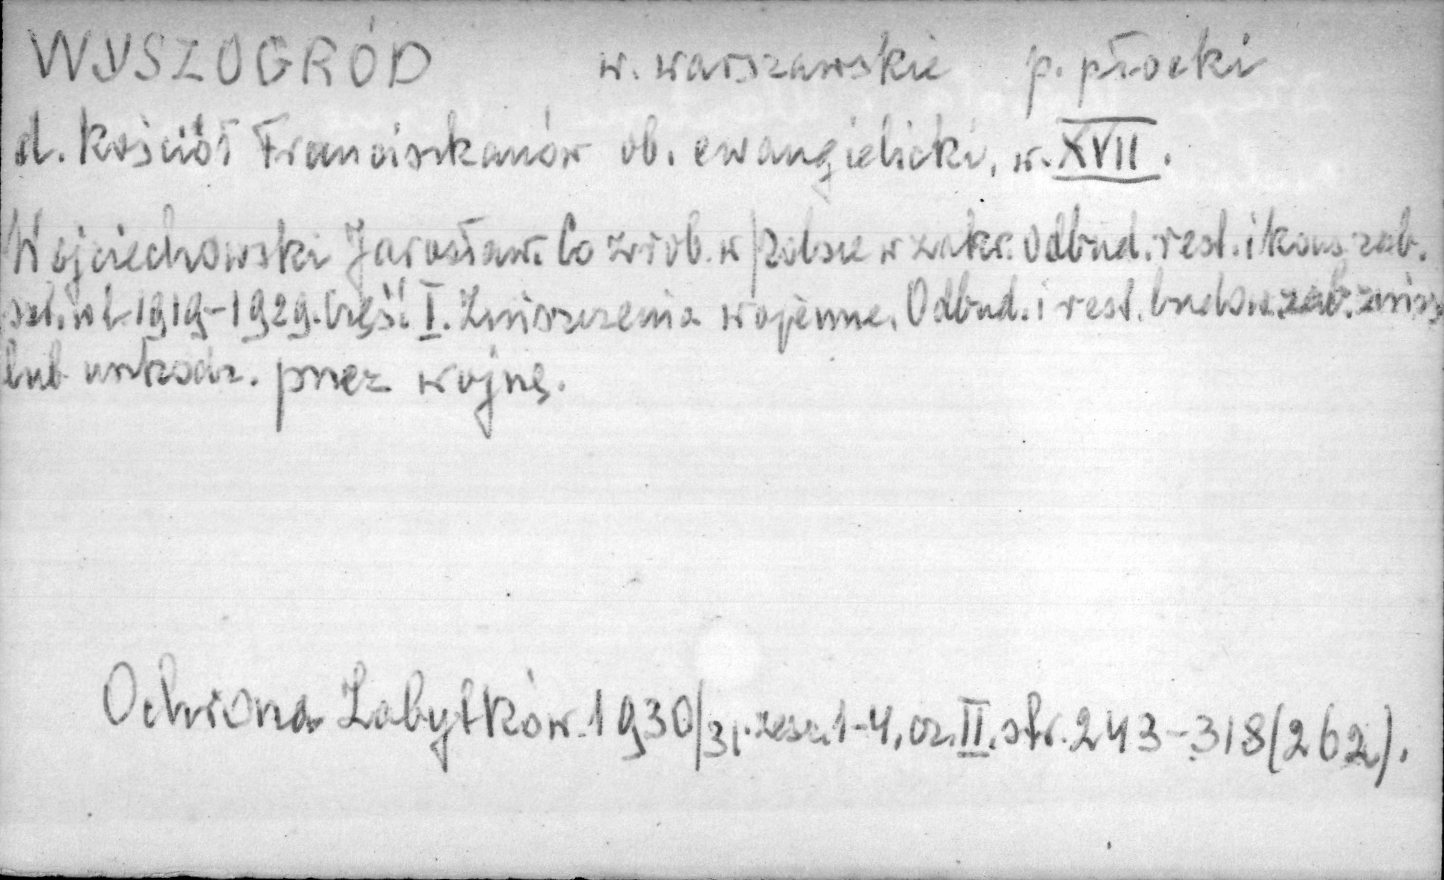 WYSZOGRÓD w. warszawskie p. płocki
d. kościół Franciszkanów ob. ewangielicki, w. XVII.
Wojciechowski Jarosław. Co zrob. w Polsce w zakr. odbud. rest. i kons. zab.
szt. w l. 1919-1929. Część I. Zniszczenia wojenne. Odbud. i rest. budow. zab. zniszcz
lub uszkodz. przez wojnę.
Ochrona Zabytków. 1930/31. zesz. 1-4, cz. II. str. 243-318 (262).